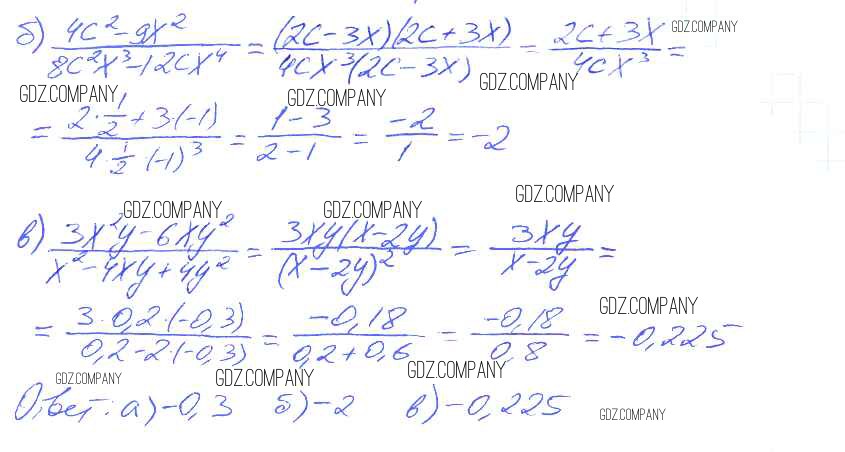 б) (4c² - 9x²)/(8c²x³ - 12cx⁴) = (2c - 3x)(2c + 3x)/(4cx³(2c - 3x)) = (2c + 3x)/(4cx³) =
GDZ.COMPANY
GDZ.COMPANY GDZ.COMPANY GDZ.COMPANY
= (2·1/2 + 3·(-1))/(4·1/2·(-1)³) = (1 - 3)/(2 - 1) = -2/1 = -2
GDZ.COMPANY GDZ.COMPANY GDZ.COMPANY
в) (3x²y - 6xy²)/(x² - 4xy + 4y²) = 3xy(x - 2y)/(x - 2y)² = 3xy/(x - 2y) =
GDZ.COMPANY
= (3·0,2·(-0,3))/(0,2 - 2·(-0,3)) = -0,18/(0,2 + 0,6) = -0,18/0,8 = -0,225
GDZ.COMPANY GDZ.COMPANY GDZ.COMPANY
Ответ: а) -0,3 б) -2 в) -0,225
GDZ.COMPANY